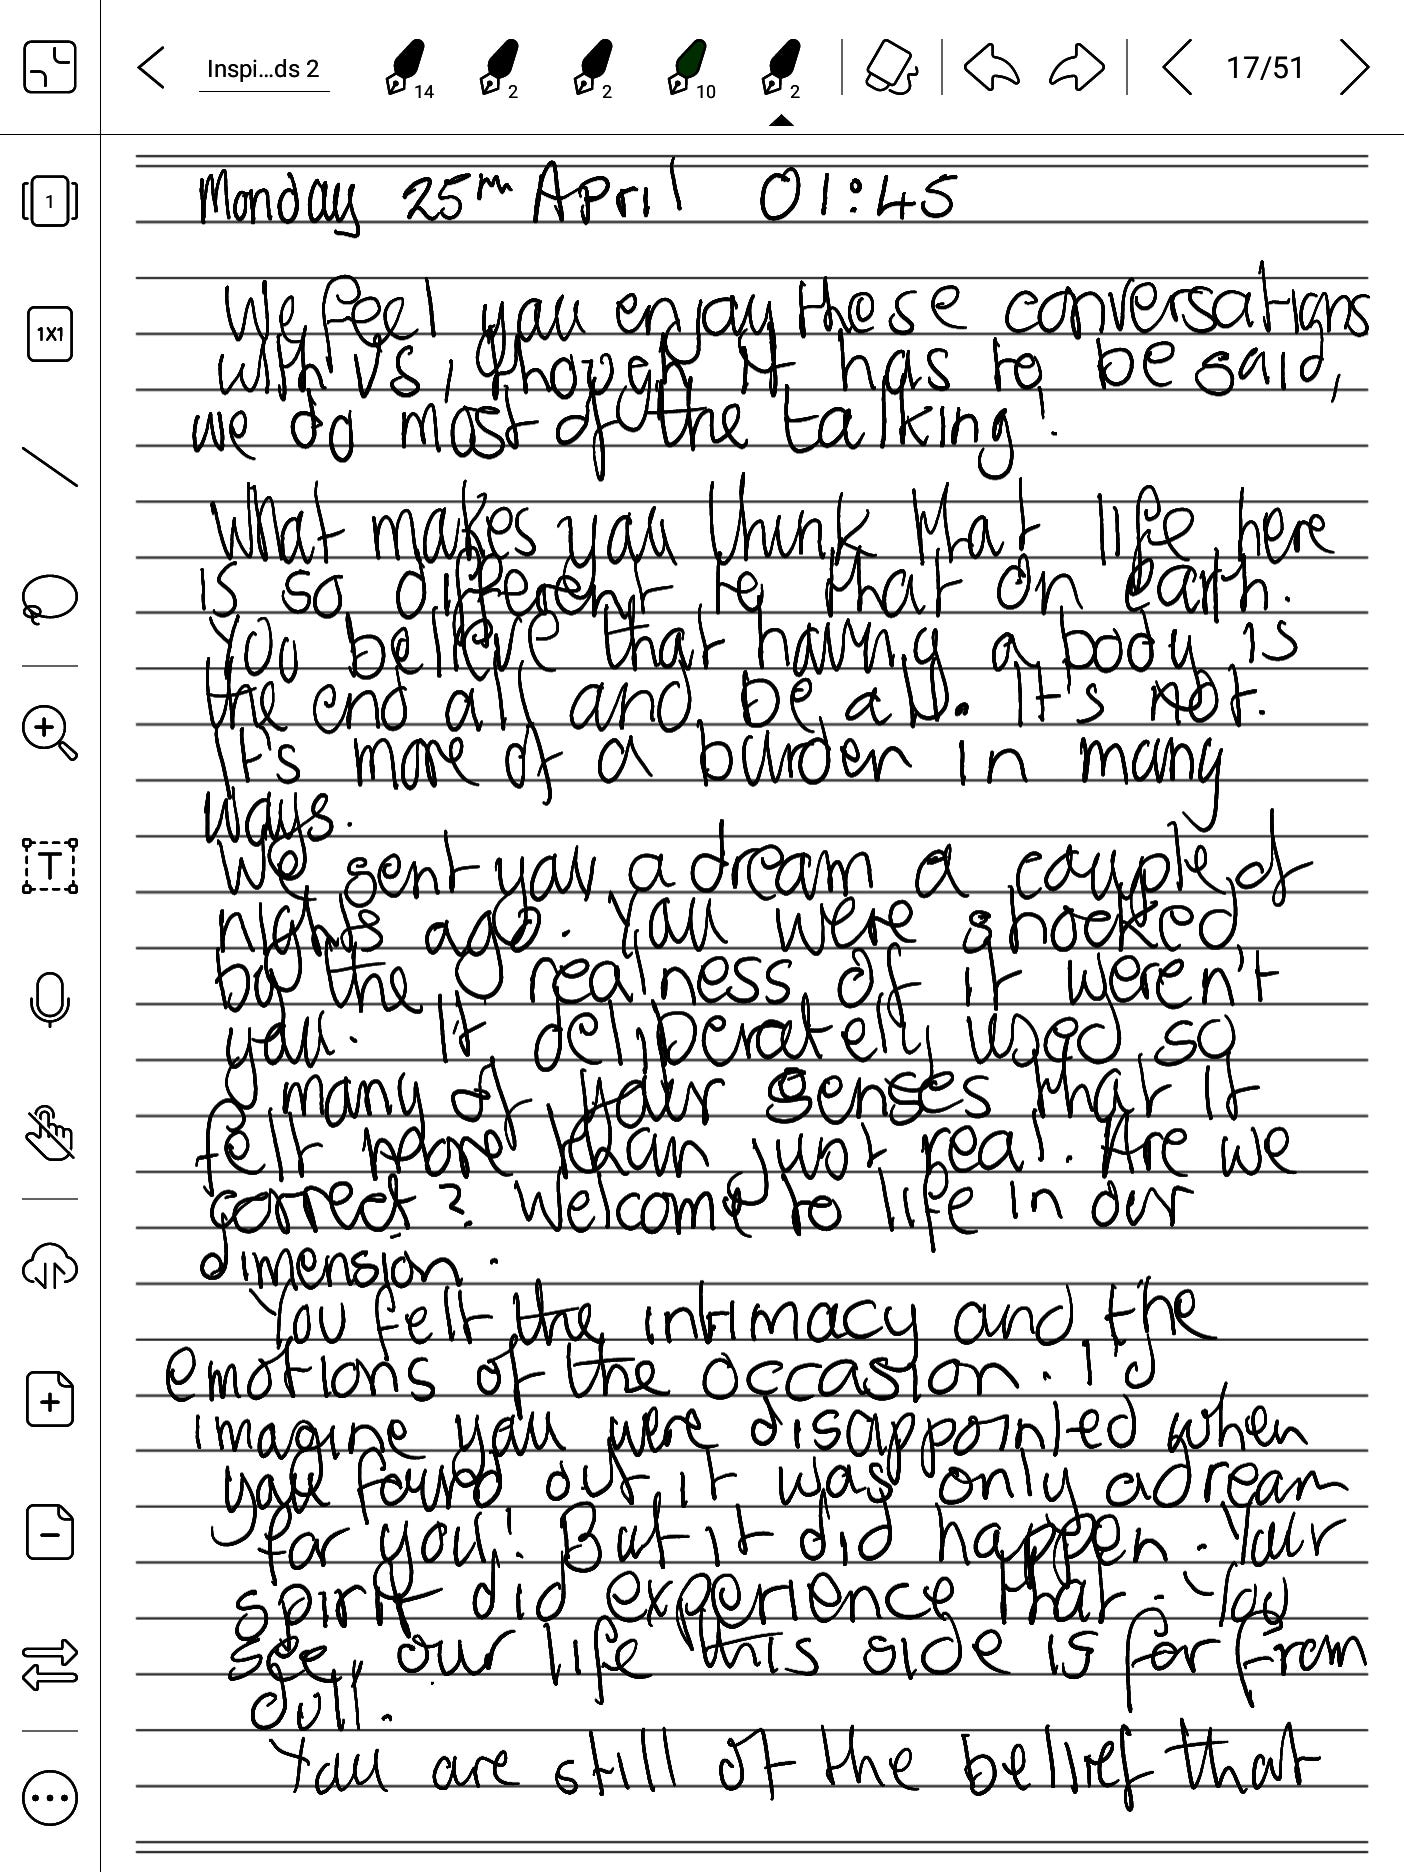 Inspi...ds 2
14
2
2
10
2
17/51
1
1X1
T
Monday 25th April 01:45
We feel you enjoy these conversations
with us, though it has to be said,
we do most of the talking!
What makes you think that life here
is so different to that on earth.
You believe that having a body is
the end all and be all. It's not.
It's more of a burden in many
ways.
We sent you a dream a couple of
nights ago. You were shocked
by the realness of it weren't
you. It deliberately used so
many of your senses that it
felt more than just real. Are we
correct? Welcome to life in our
dimension.
You felt the intimacy and the
emotions of the occasion. I'd
imagine you were disappointed when
you found out it was only a dream
for you! But it did happen. Your
spirit did experience that. You
see, our life this side is far from
dull.
You are still of the belief that